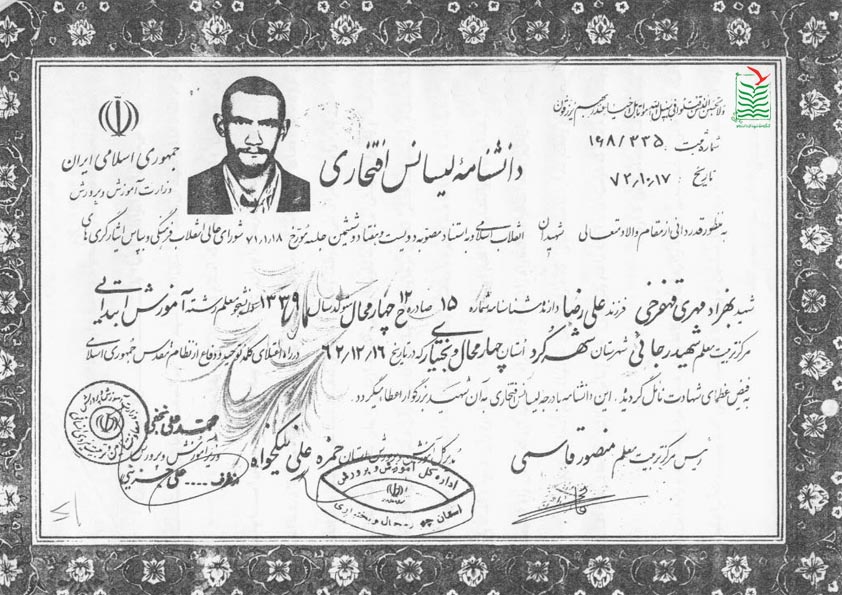 ولا تحسبن الذین قتلوا فی سبیل الله امواتا بل احیاء عند ربهم یرزقون
شماره ثبت : ۱۹۸/۳۳۵
تاریخ : ۷۲,۱۰,۱۷
جمهوری اسلامی ایران
وزارت آموزش و پرورش
دانشنامهٔ لیسانس افتخاری
به منظور قدردانی از مقام والا و متعالی شهیدان انقلاب اسلامی و به استناد مصوبه دویست و هفتاد و ششمین جلسه مورخ ۷۱,۱,۱۸ شورای عالی انقلاب فرهنگی و بپاس ایثارگری های
شهید بهزاد مهری قهفرخی فرزند علی رضا دارنده شناسنامه شماره ۱۵ صادره چهارمحال متولد سال ۱۳۳۹ دانشجو معلم رشته آموزش ابتدایی
مرکز تربیت معلم شهید رجائی شهرستان شهرکرد استان چهارمحال و بختیاری که در تاریخ ۶۲,۱۲,۱۶ در راه اعتلای کلمه توحید و دفاع از نظام مقدس جمهوری اسلامی
به فیض عظمای شهادت نائل گردیده‌اند، این دانشنامه با درجه لیسانس افتخاری به آن شهید بزرگوار اعطا میگردد.
رئیس مرکز تربیت معلم منصور قاسمی
مدیر کل آموزش و پرورش استان حمزه علی نیکخواه
محمد علی نجفی
وزیر آموزش و پرورش
از طرف .... علی
اداره کل آموزش و پرورش
استان چهارمحال و بختیاری